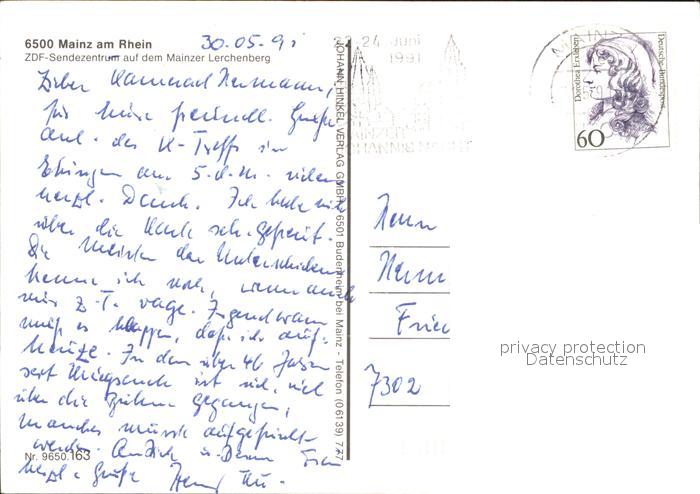 6500 Mainz am Rhein
ZDF-Sendezentrum auf dem Mainzer Lerchenberg
30.05.91
Lieber Kamerad Hermann,
für Deine freundl. Grüße
anl. des K-Treffs in
Ehingen am 5.d.M. vielen
herzl. Dank. Ich habe mich
über die Karte sehr gefreut.
Die Meisten der Unterschriften
kenne ich noch, wenn auch
nur z.T. vage. Irgendwann
muß es klappen, daß ich auf-
kreuze. In den über 46 Jahren
seit Kriegsende ist viel, viel
über die Bühne gegangen,
manches müßte aufgefrischt
werden. An Dich u. Deine Frau
herzl. Grüße
Nr. 9650.163
JOHANN HINKEL VERLAG GMBH · 6501 Budenheim bei Mainz - Telefon (06139)
22-24 Juni
1991
MAINZER
JOHANNISNACHT
MAINZ
Dorothea Erxleben
Deutsche Bundespost
60
Herrn
7302
privacy protection
Datenschutz